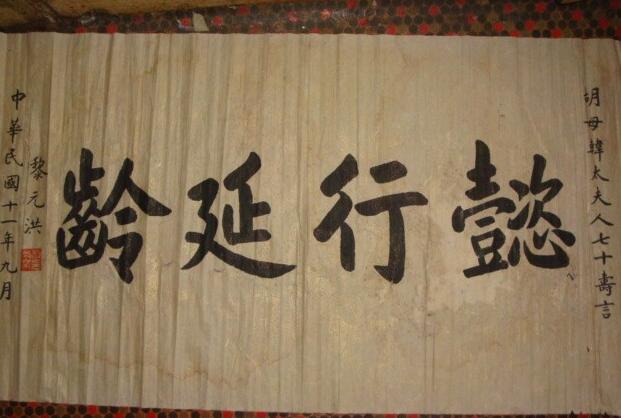 胡母韓太夫人七十壽言
懿行延齡
黎元洪
中華民國十一年九月